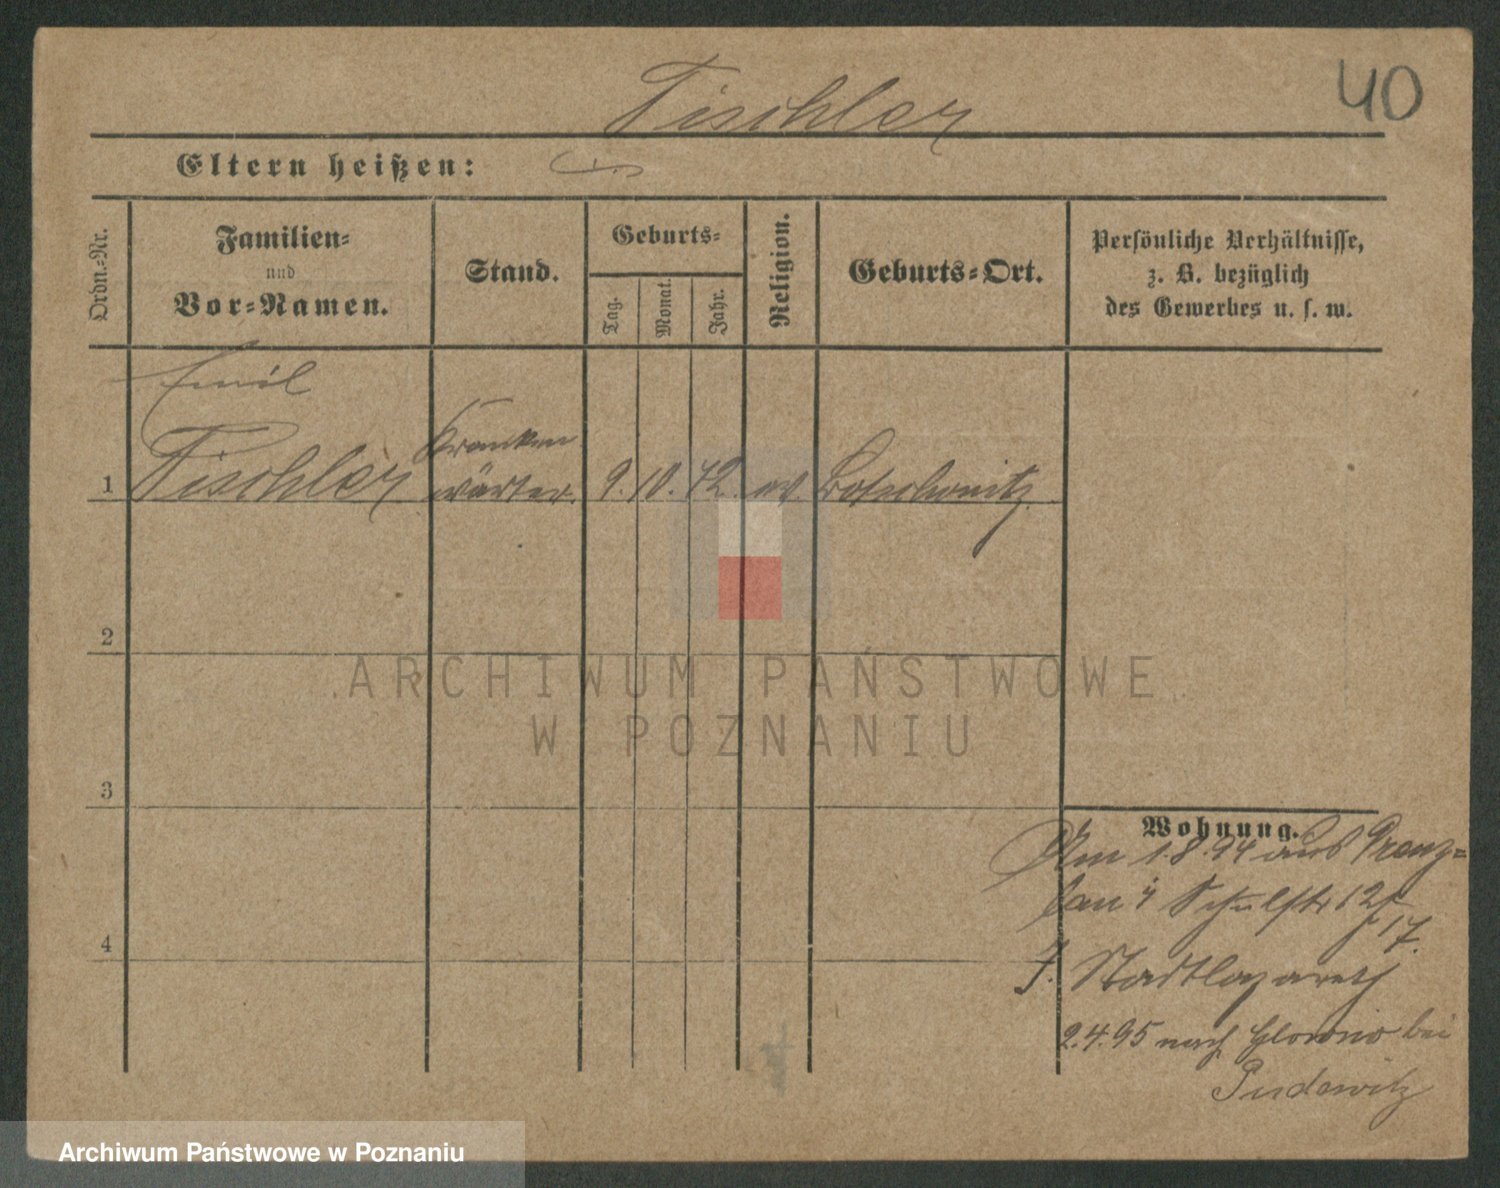 Tischler
40
Eltern heißen:
Ordn.-Nr.
Familien-
und
Vor-Namen.
Stand.
Geburts-
Tag.
Monat.
Jahr.
Religion.
Geburts-Ort.
Persönliche Verhältnisse,
z. B. bezüglich
des Gewerbes u. s. w.
Emil
1 Tischler Kranken
wärter. 9. 10. 72. ev.
2
3
4
Wohnung.
Am 1.8.94 aus Prenz-
lau Schulstr 12
17.
J. Stadtlazareth
2.4.95 nach Glowno bei
Pudewitz
ARCHIWUM PAŃSTWOWE
W POZNANIU
Archiwum Państwowe w Poznaniu